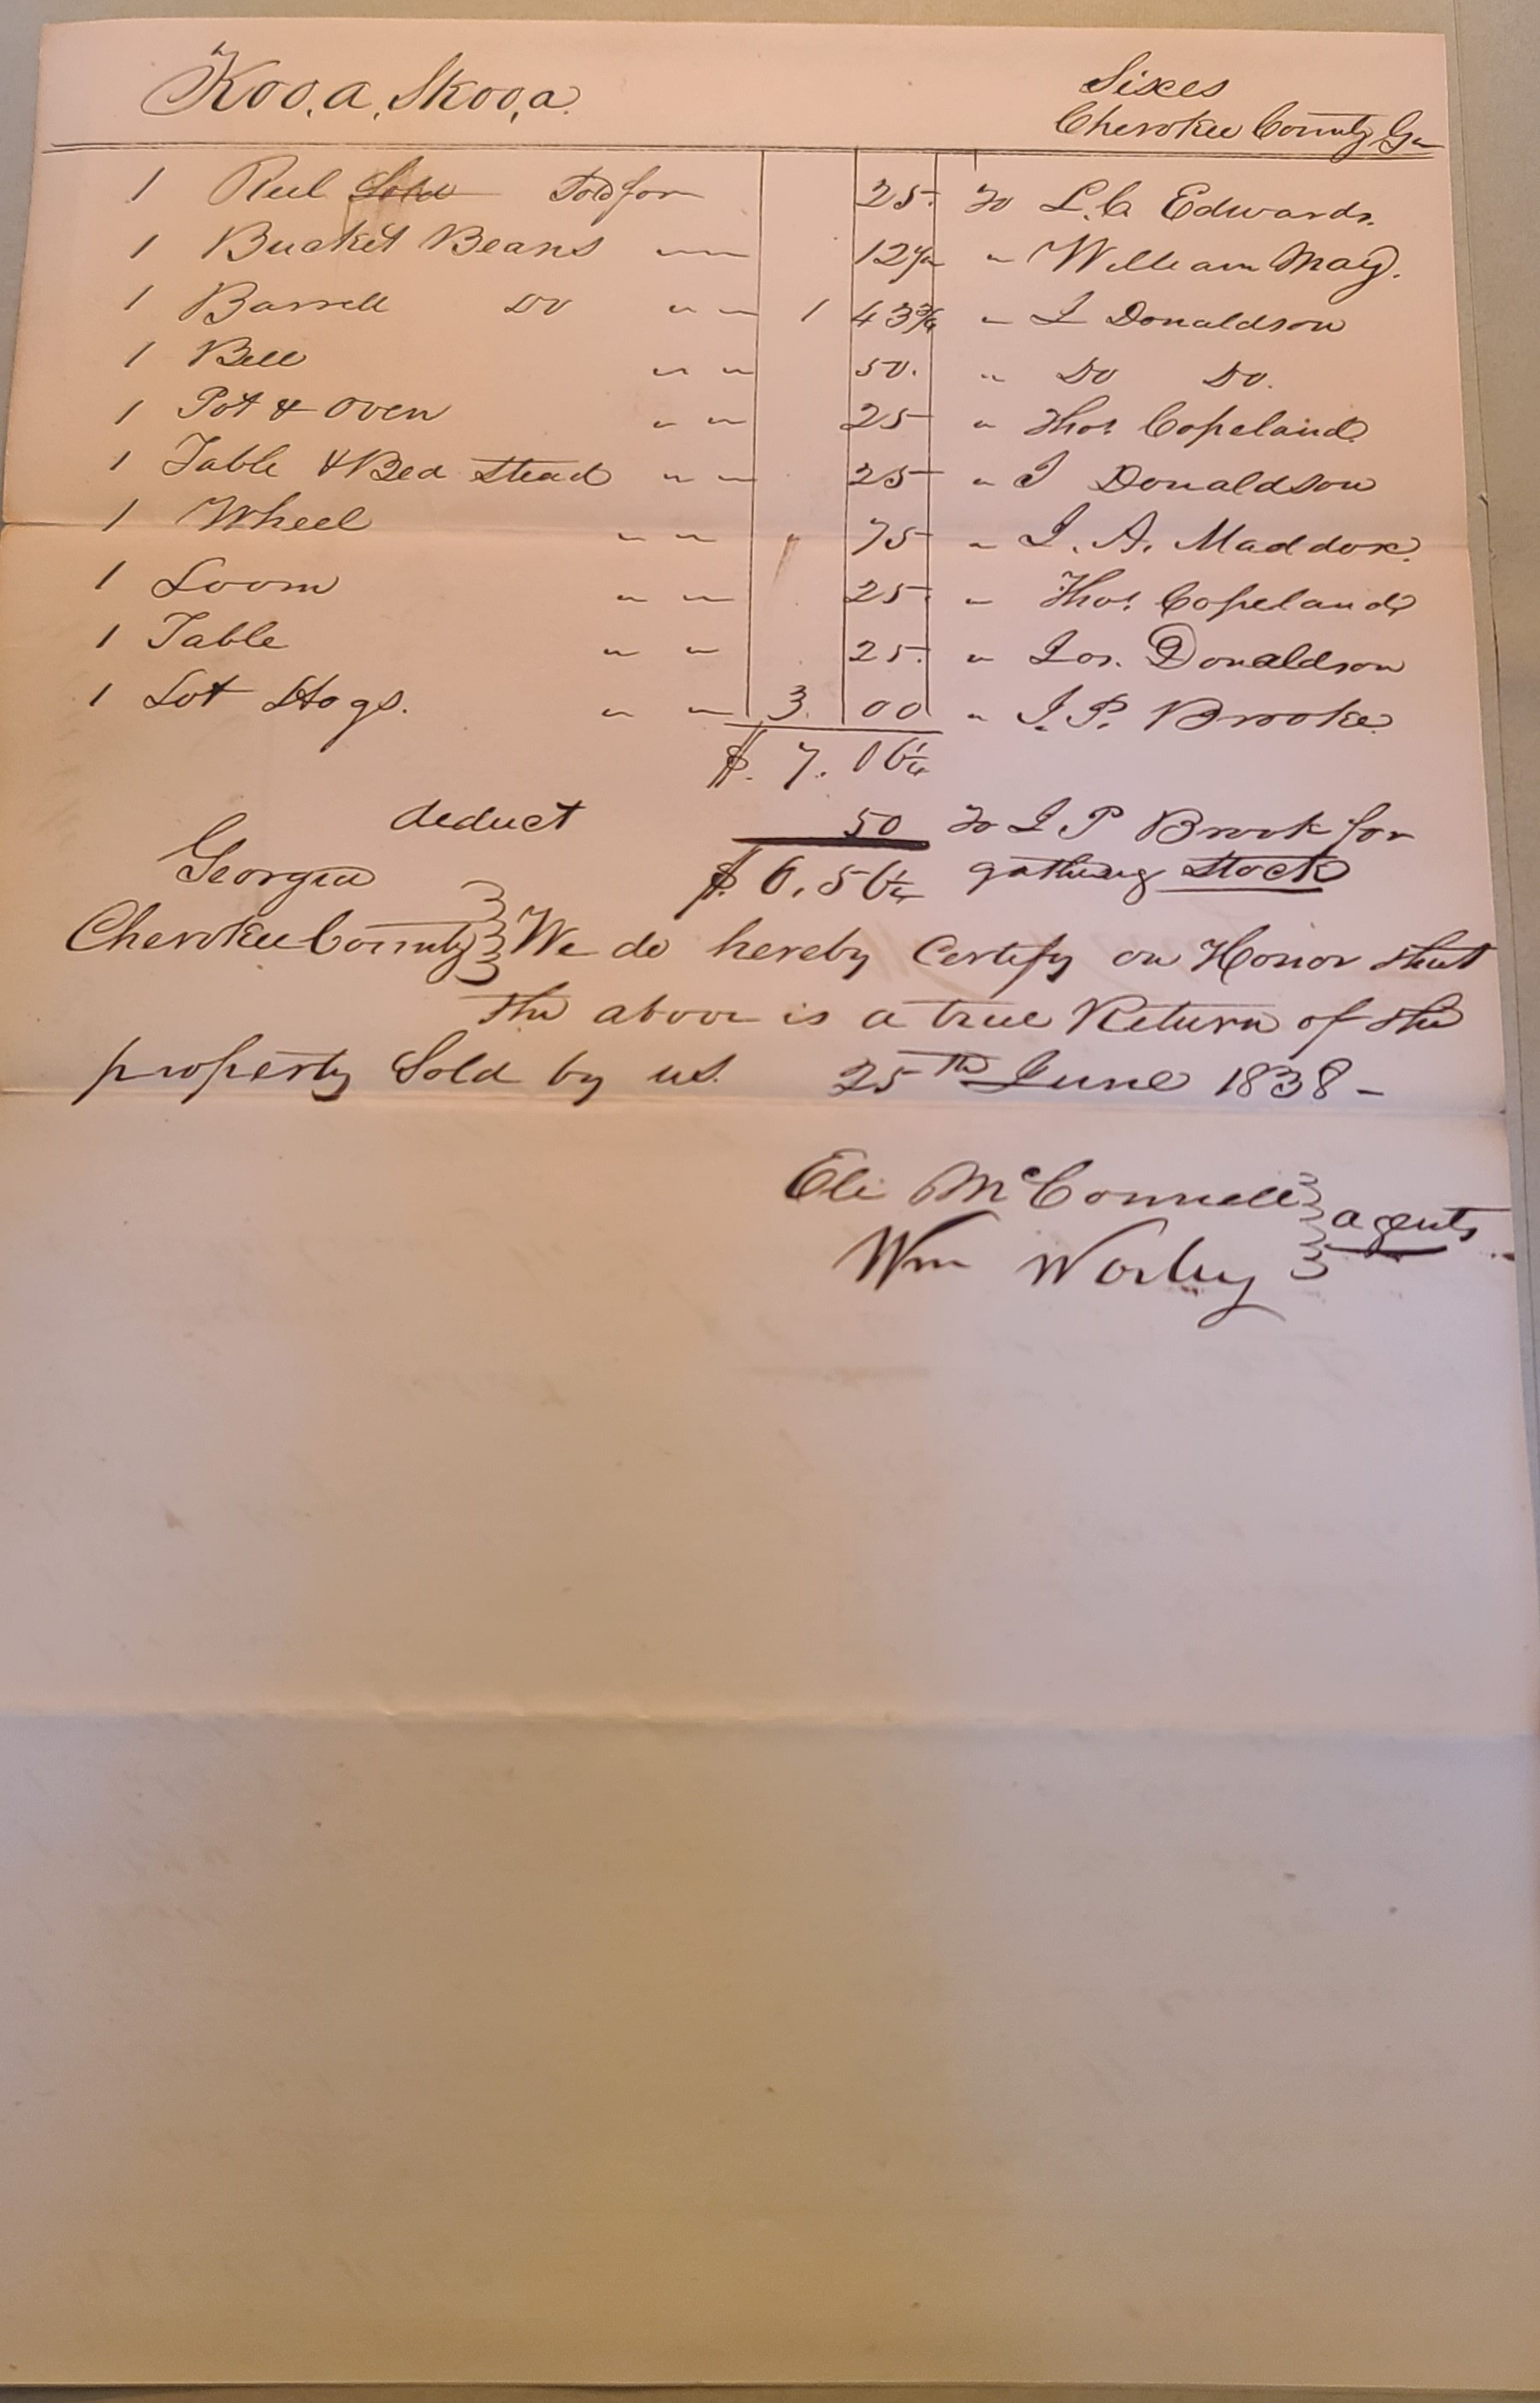 Koo,a,Skoo,a. Sixes
Cherokee County Ga
1 Reel Sold Sold for 25. To L. C. Edwards.
1 Bucket Beans " " 12 1/2 " William May.
1 Barrell Do " " 1 43 3/4 " J Donaldson
1 Bell " " 50. " Do Do.
1 Pot & Oven " " 25 " Thos Copeland
1 Table & Bed Stead " " 25 " J Donaldson
1 Wheel " " 75 " J. A. Maddox.
1 Loom " " 25. " Thos Copeland
1 Table " " 25. " Jos. Donaldson
1 Lot Hogs. " " 3. 00 " J. P. Brooke.
$. 7. 06 1/4
deduct 50 To J P Brook for
Georgia $ 6. 56 1/4 gathering Stock
Cherokee County We do hereby Certify on Honor that
the above is a true Return of the
property Sold by us. 25th June 1838 -
Eli McConnell
Wm Worley agents